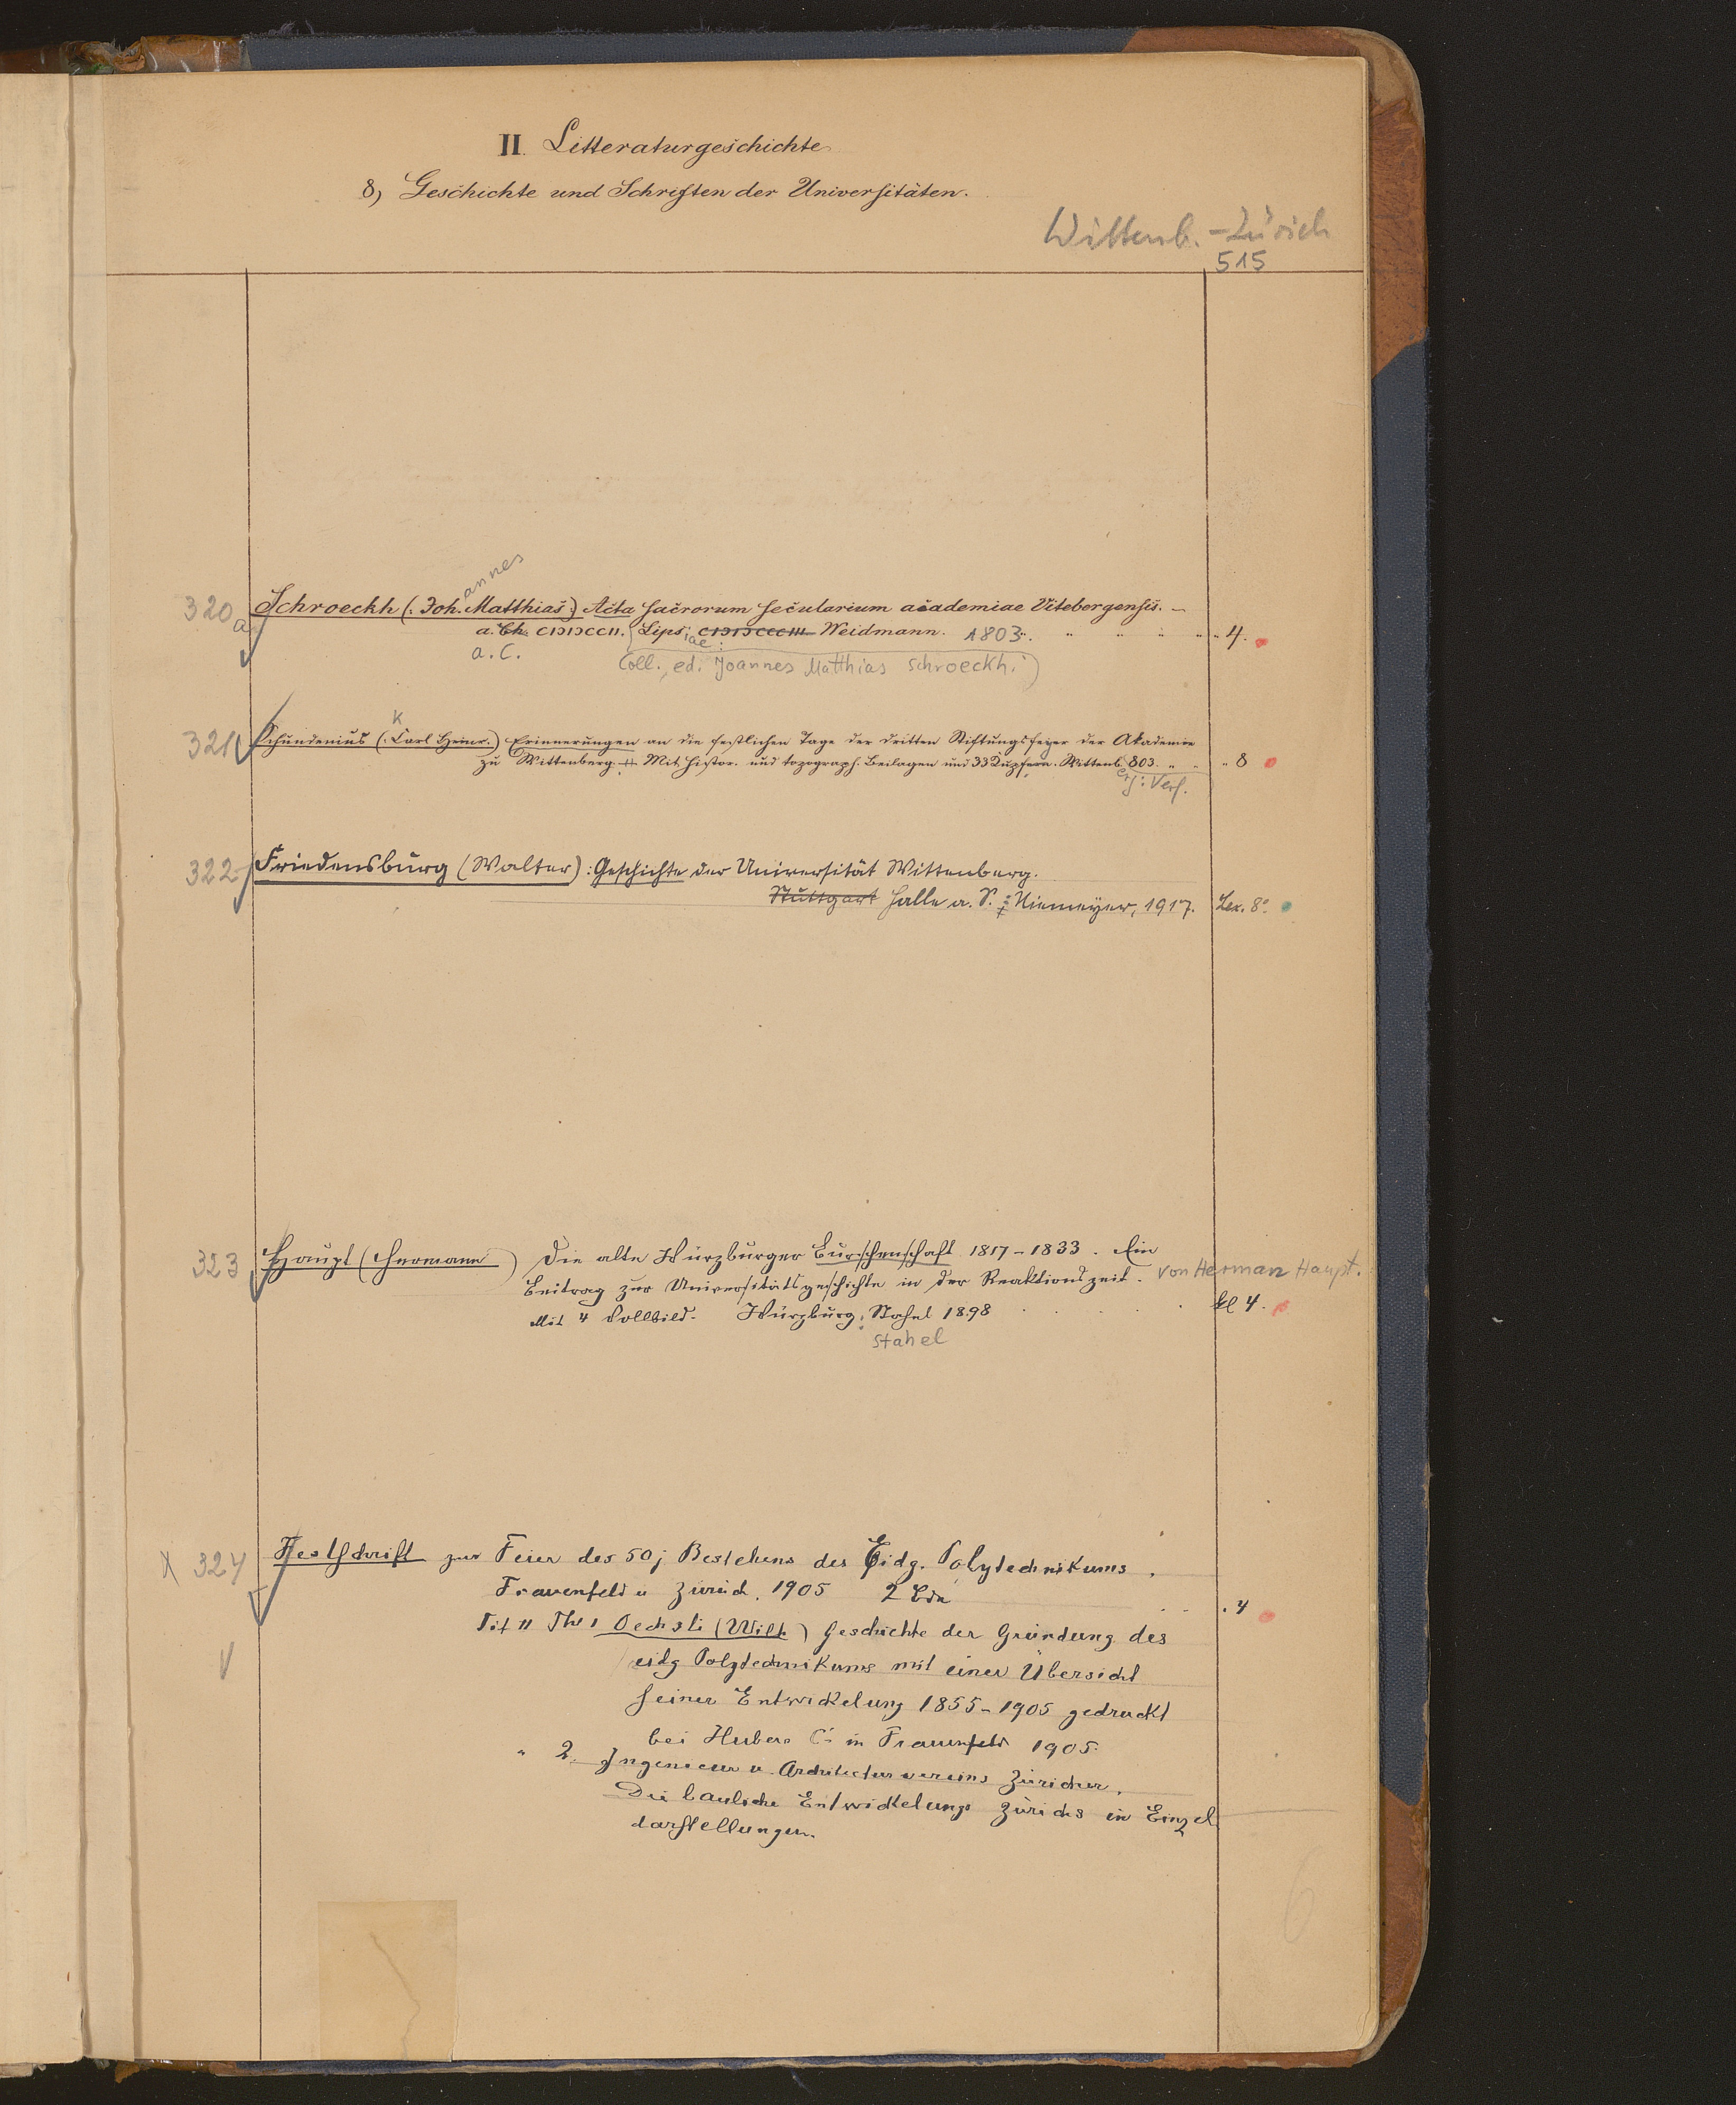 II. Litteraturgeschichte
8) Geschichte und Schriften der Universitäten.
Wittenb. - Zürich
515
annes
320 Schroeckh (: Joh. Matthias:) Acta sacrorum secularium academiae Vitebergensis. –
a. Ch. CIƆIƆCCII. Lipsiae: CIƆIƆCCCIII Weidmann. 1803. " " " " " 4.
a. C. Coll., ed. Joannes Matthias Schroeckh.)
K
321 Schundenius (: Carl Heinr.) Erinnerungen an die festlichen Tage der dritten Stiftungsfeyer der Akademie
zu Wittenberg. Mit histor. und topograph. Beilagen und 33 Kupfern. Wittenb. 803. " " " 8
erg: Verf.
322 Friedensburg (Walter): Geschichte der Universität Wittenberg.
Stuttgart Halle a. S.: Niemeyer, 1917. Lex. 8°.
323 Haupt (Hermann) Die alte Würzburger Burschenschaft 1817-1833. Ein
Beitrag zur Universitätsgeschichte in der Reaktionszeit. von Herman Haupt.
Mit 4 Vollbild. Würzburg: Stahel 1898 . . . . . kl 4.
Stahel
X 324 Festschrift zur Feier des 50 j Bestehens des Eidg. Polytechnikums.
Frauenfeld u Zürich. 1905 2 Bde . . . 4
Tit II Thl 1 Oechsli (Wilh) Geschichte der Gründung des
eidg Polytechnikums mit einer Übersicht
seiner Entwickelung 1855-1905 gedruckt
bei Huber & Cie in Frauenfeld 1905.
" 2. Ingenieur u. Architectur vereins Züricher.
Die bauliche Entwickelung Zürichs in Einzel
darstellungen.
6